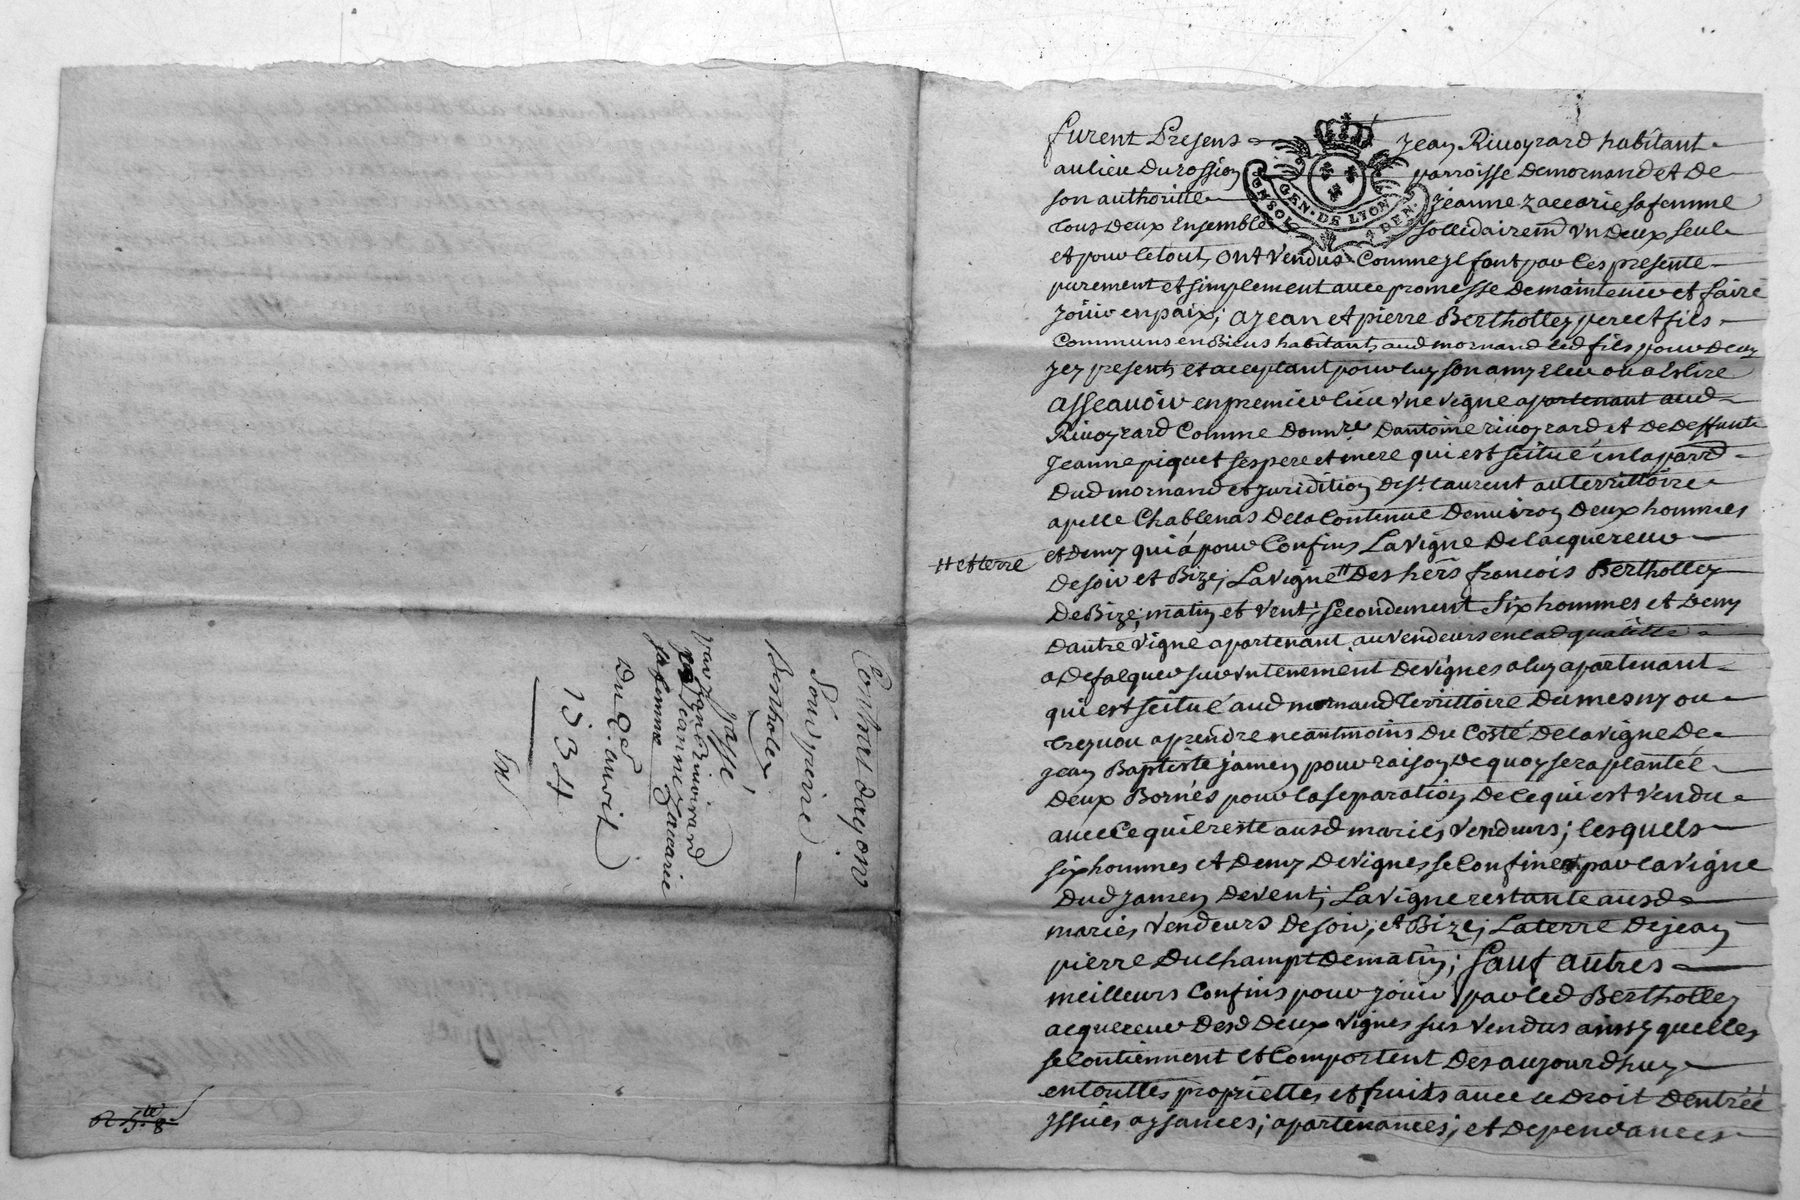 Contrat daqoin
Sours pierre
Bertholey
Passé
par Jean Rivoirard
Jeanne Zacarie
sa femme
Du 2e avril
1734
furent Presens Jean Rivoyrard habitant
au lieu du rossion parroisse de mornand et de
son authoritté Jeanne Zaccarie sa femme
tous deux Ensemble sollidairemt un deux seul
et pour le tout, ont vendus comme Jl font par ces presente
purement et simplement avec promesse de maintenir et faire
Joüir en paix; a Jean et pierre Bertholley pere et fils
Communs en Biens habitants aud mornand led fils pour deux
Jcy presents et acceptant pour luy son amy Eleu ou a Eslire
Asseavoir en premier lieu une vigne apartenant aud
Rivoyrard Comme donnre dantoine rivoyrard et de deffunte
Jeanne piquet ses pere et mere qui est scitué en la parrd
dud mornand et Juridition de st laurent au territtoire
apellé Chablenas de la Contenue denviron deux hommes
et demy qui á pour Confins La vigne de lacquereur
de soir et Bize; La vigne # des hers francois Bertholley
# et terre
de Bize, matin et vent; secondement Six hommes et demy
dautre vigne apartenant au vendeurs en lad qualitté
a defalquer sur un tenement de vignes a luy apartenant
qui est scitué aud mornand territtoire dumesny ou
trezuou a prendre neantmoins du Costé de la vigne de
Jean Baptiste Jamen pour raison de quoy sera planté
deux Bornes pour la separation de ce qui est vendu
avec Ce quil reste ausd mariés vendeurs; lesquels
six hommes et demy de vignes se Confinent par la vigne
dud Jamen de vent; La vigne restante ausd
mariés vendeurs de soir, et Bize; La terre de Jean
pierre duchampt de matin; Sauf autres
meilleurs Confins pour Joüir par led Bertholley
acquereur desd deux vignes sus vendus ainsy quelles
se Contiennent et Comportent des aujourdhuy
en touttes propriettes et fruits avec le droit dentréé
Jssües aysances; apartenances; et dependances
GEN. DE LYON